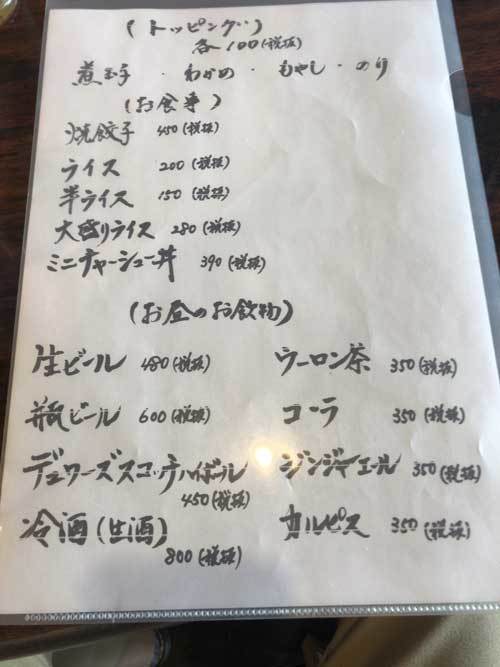 (トッピング)
各100(税抜)
煮玉子・わかめ・もやし・のり
(お食事)
焼餃子 450(税抜)
ライス 200(税抜)
半ライス 150(税抜)
大盛りライス 280(税抜)
ミニチャーシュー丼 390(税抜)
(お昼のお飲物)
生ビール 480(税抜) ウーロン茶 350(税抜)
瓶ビール 600(税抜) コーラ 350(税抜)
デュワーズスコッチハイボール 450(税抜) ジンジャエール 350(税抜)
冷酒(生酒) 800(税抜) カルピス 350(税抜)